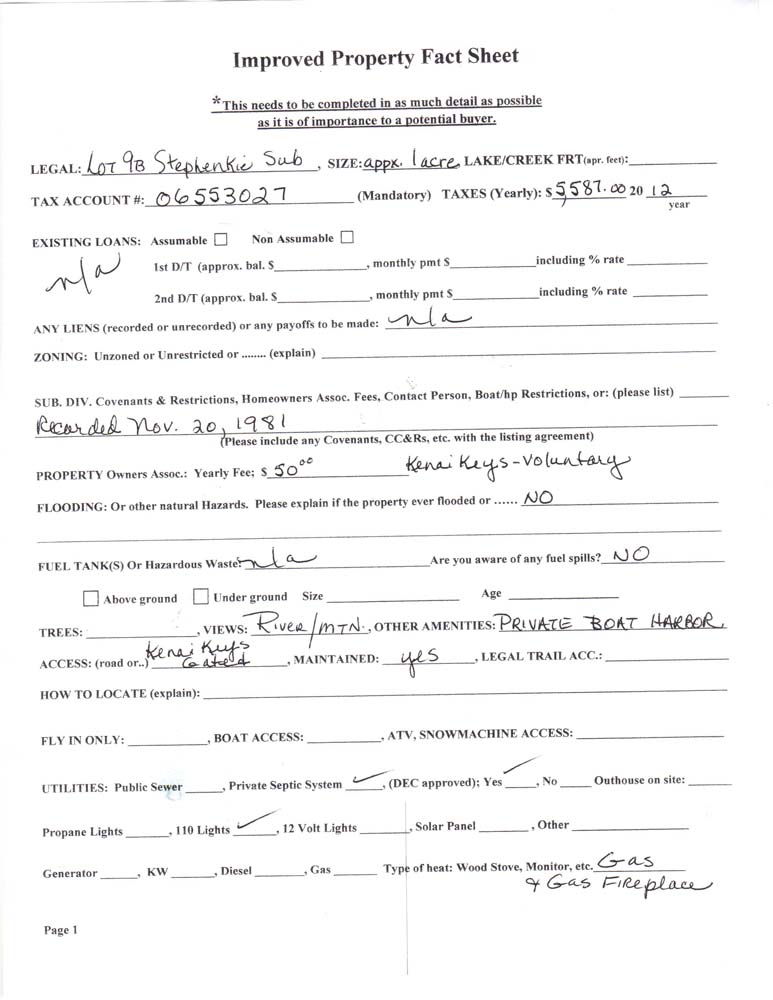 Improved Property Fact Sheet
*This needs to be completed in as much detail as possible
as it is of importance to a potential buyer.
LEGAL: LOT 9B Stephenkie Sub, SIZE: appx. 1 acre, LAKE/CREEK FRT(apr. feet):
TAX ACCOUNT #: 06553027 (Mandatory) TAXES (Yearly): $ 5,587.00 20 12
year
EXISTING LOANS: Assumable ☐ Non Assumable ☐
n/a 1st D/T (approx. bal. $________, monthly pmt $________including % rate ________
2nd D/T (approx. bal. $________, monthly pmt $________including % rate ________
ANY LIENS (recorded or unrecorded) or any payoffs to be made: n/a
ZONING: Unzoned or Unrestricted or ........ (explain) ________
SUB. DIV. Covenants & Restrictions, Homeowners Assoc. Fees, Contact Person, Boat/hp Restrictions, or: (please list) ________
Recorded Nov. 20, 1981
(Please include any Covenants, CC&Rs, etc. with the listing agreement)
PROPERTY Owners Assoc.: Yearly Fee; $ 50.00 Kenai Keys-Voluntary
FLOODING: Or other natural Hazards. Please explain if the property ever flooded or ...... NO
FUEL TANK(S) Or Hazardous Waste? n/a Are you aware of any fuel spills? NO
☐ Above ground ☐ Under ground Size ________ Age ________
TREES: ________, VIEWS: River/MTN., OTHER AMENITIES: PRIVATE BOAT HARBOR,
ACCESS: (road or..) Kenai Keys Gated, MAINTAINED: yes, LEGAL TRAIL ACC.: ________
HOW TO LOCATE (explain): ________
FLY IN ONLY: ________, BOAT ACCESS: ________, ATV, SNOWMACHINE ACCESS: ________
UTILITIES: Public Sewer ______, Private Septic System ✓, (DEC approved); Yes ✓, No _____ Outhouse on site: ______
Propane Lights ______, 110 Lights ✓, 12 Volt Lights ______, Solar Panel ______, Other ________
Generator _____, KW _____, Diesel _____, Gas _____ Type of heat: Wood Stove, Monitor, etc. Gas
& Gas Fireplace
Page 1